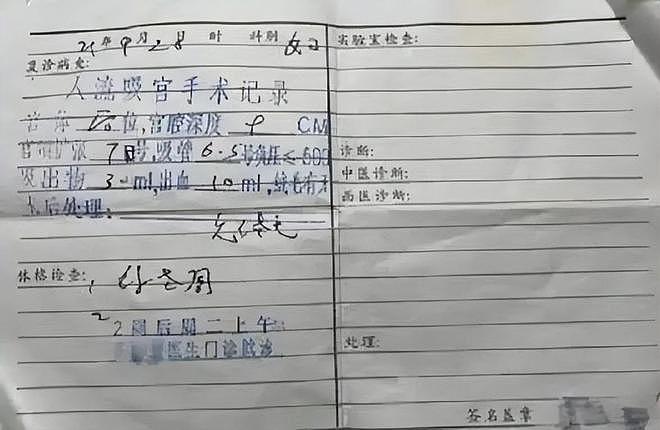 21年9月28 时 科别 妇口
实验室检查:
复诊病史:
人流吸宫手术记录
宫体 后 位,宫腔深度 9 CM
宫颈扩张 7 号,吸管 6.5 号负压≤600
吸出物 30 ml,出血 10 ml,绒毛有
术后处理:
诊断:
中医诊断:
西医诊断:
体格检查:
1、休息 周
2
2周后周二上午
医生门诊随诊
处理:
签名盖章